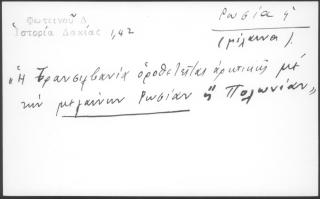 Φωτεινοῦ Δ
Ἱστορία Δακίας 1,42
Ρωσία ἡ
(μέλαινα).
"Ἡ Τρανσυλβανία ὁροθετεῖται ἀρκτικῶς μὲ
τὴν μεγάλην Ρωσίαν ἢ Πολωνίαν"